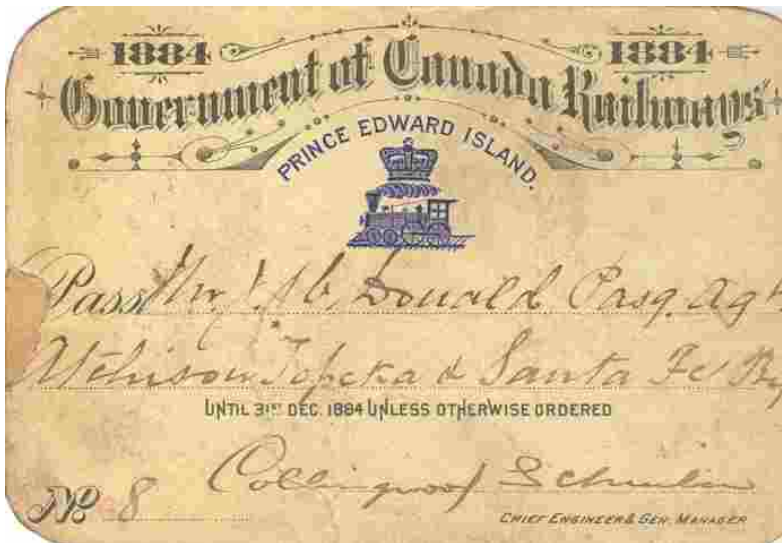 1884 1884
Government of Canada Railways
PRINCE EDWARD ISLAND.
Pass Mr. Donald Pasg. Agt
Atchison Topeka & Santa Fe Ry
UNTIL 31ST DEC. 1884 UNLESS OTHERWISE ORDERED
Collingwood Schreiber
No 8
CHIEF ENGINEER & GEN. MANAGER